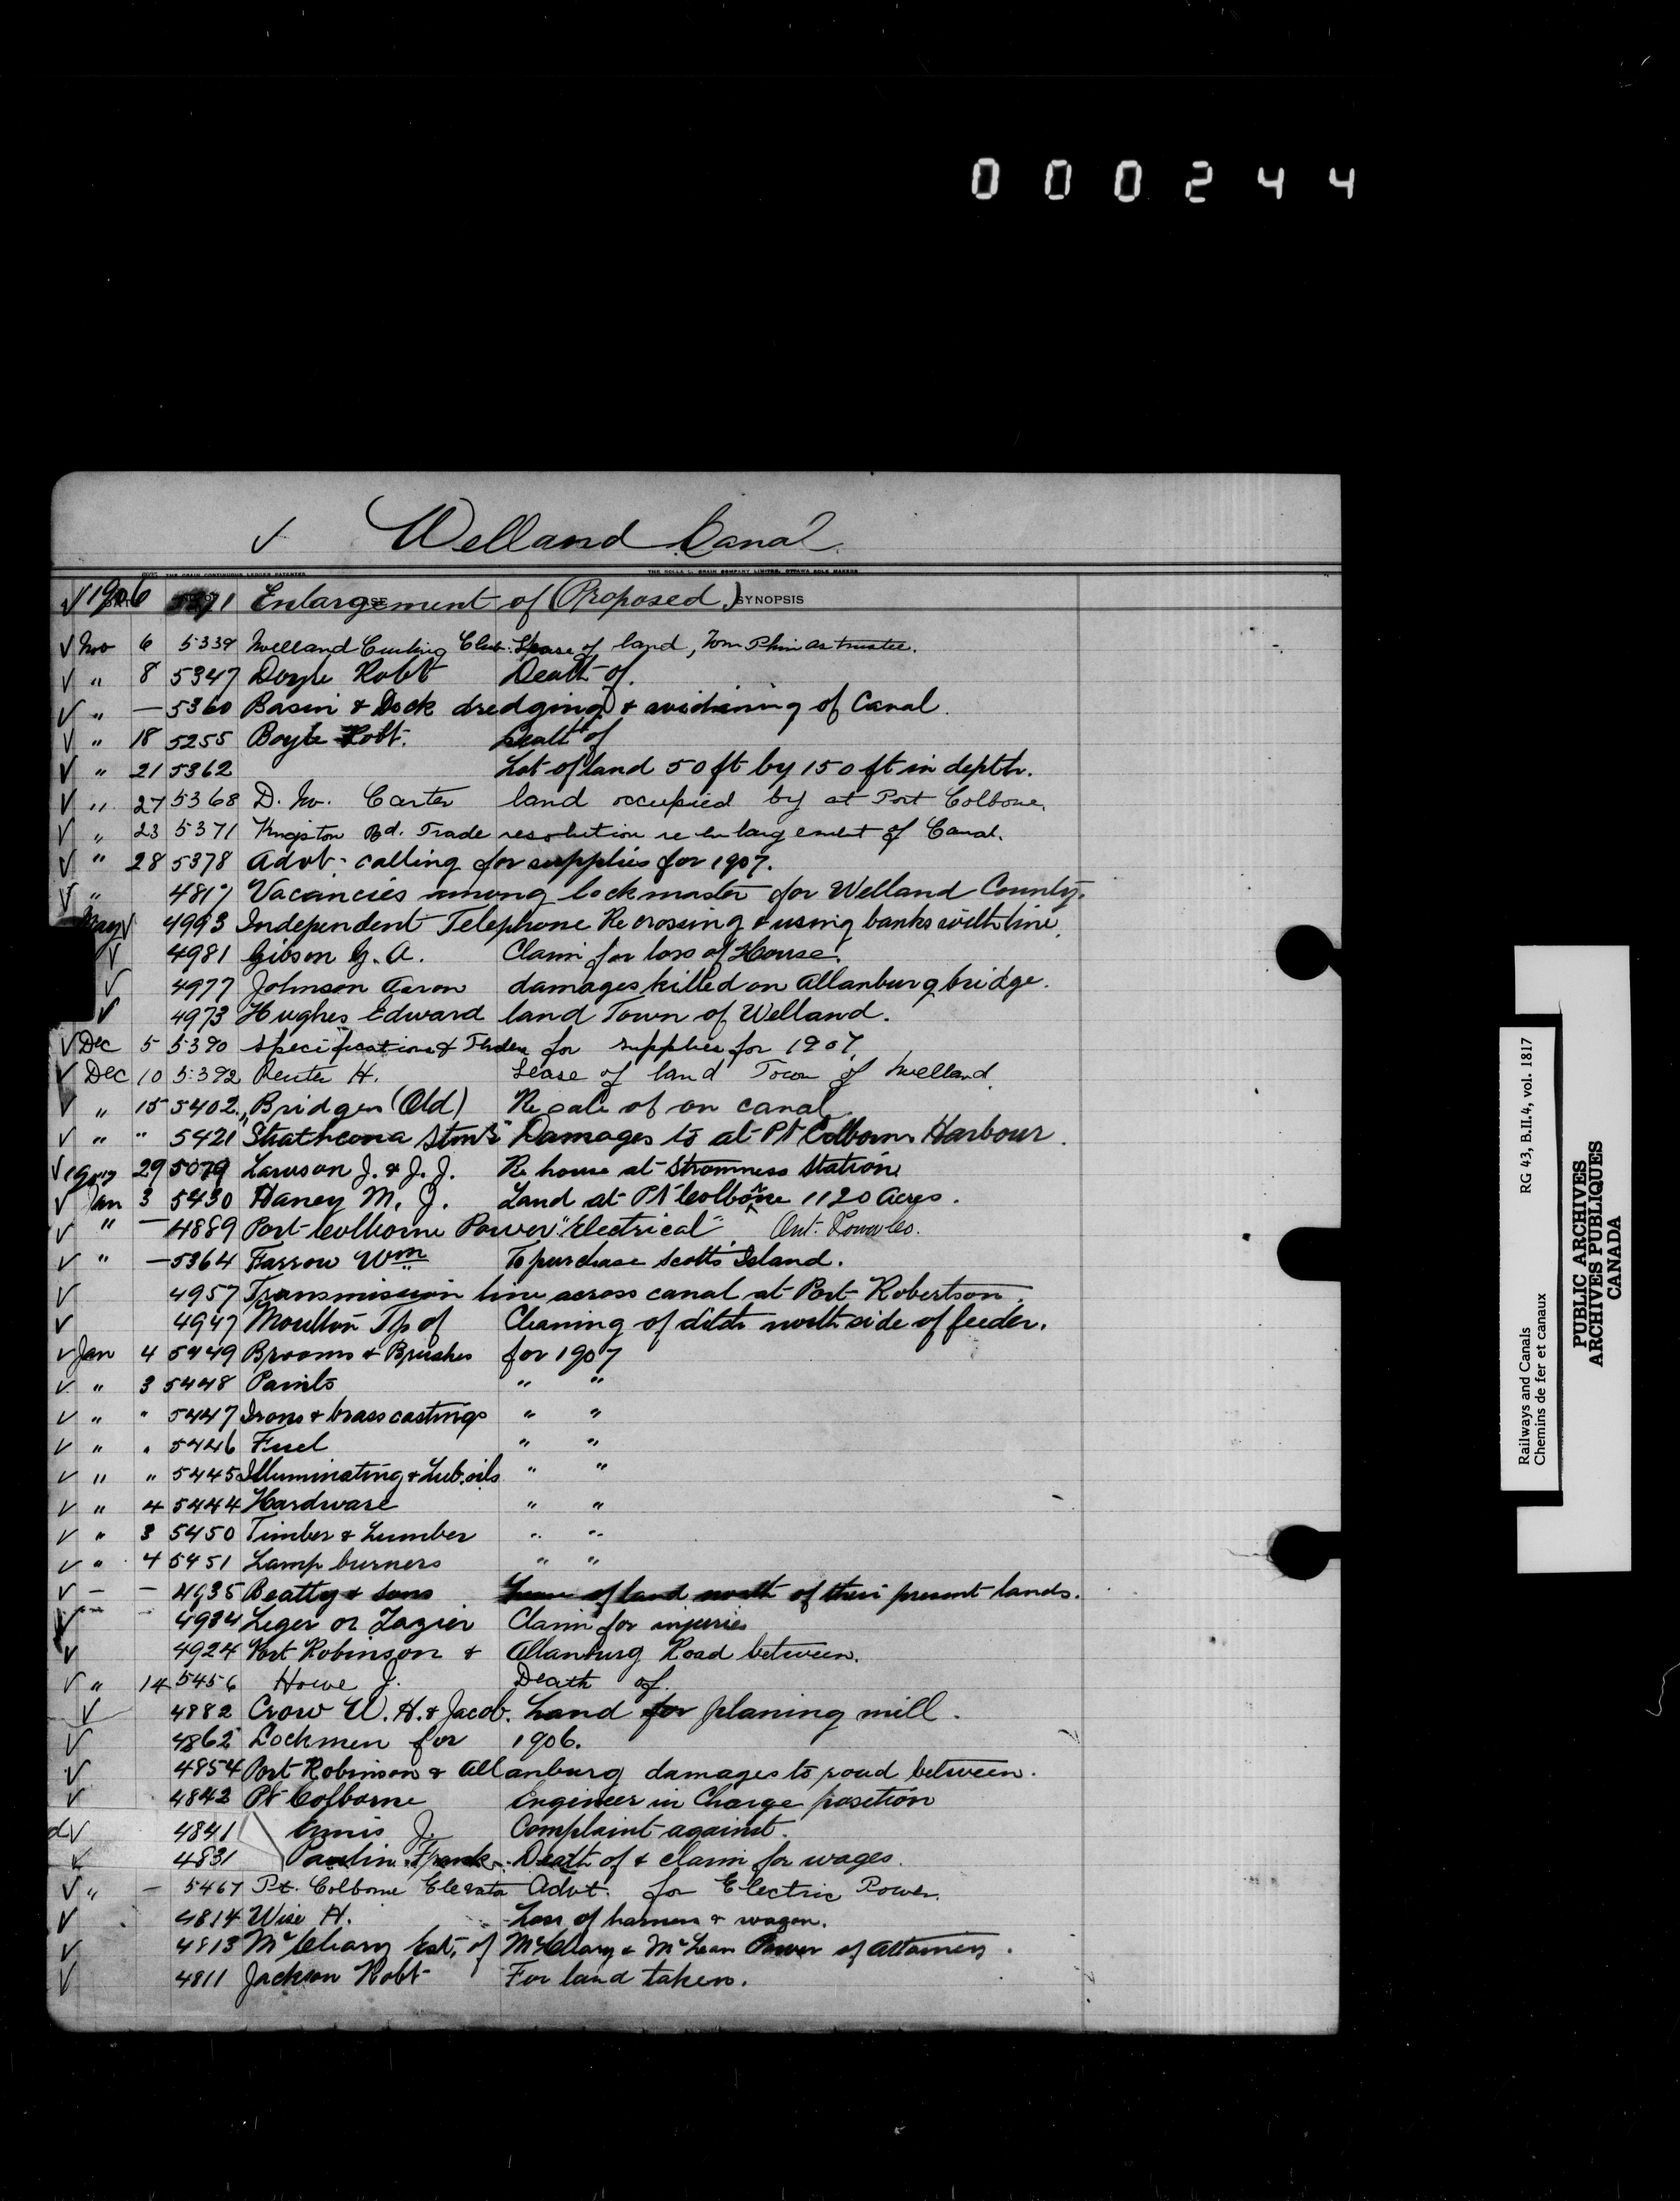 000244
✓ Welland Canal
✓ 1906 5371 Enlargement of (Proposed) SYNOPSIS
✓ Nov 6 5339 Welland Curling Club. Lease of land, Wm Phin as trustee.
✓ " 8 5347 Doyle Robt Death of.
✓ " — 5360 Basin & Dock dredging & widening of Canal.
✓ " 18 5255 Boyle Robt. Death of
✓ " 21 5362 Lot of land 50 ft by 150 ft in depth.
✓ " 27 5368 D. W. Carter land occupied by at Port Colbone.
✓ " 23 5371 Kingston Bd. Trade resolution re enlargement of Canal.
✓ " 28 5378 Advt. calling for supplies for 1907.
✓ " 4817 Vacancies among lockmaster for Welland County.
May ✓ 4993 Independent Telephone Re crossing & using banks with line.
✓ 4981 Gibson G. A. Claim for loss of House.
✓ 4977 Johnson Aaron damages killed on Allanburg bridge.
✓ 4973 Hughes Edward land Town of Welland.
✓ Dec 5 5390 Specifications & Tender for supplies for 1907.
✓ Dec 10 5392 Reuter H. Lease of land Town of Welland.
✓ " 15 5402 Bridges (Old) Re sale of on canal.
✓ " " 5421 "Strathcona Stmr" Damages to at Pt Colborne Harbour.
✓ 1907 29 5079 Lawson J. & J. J. Re house at Stromness Station
✓ Jan 3 5430 Haney M. J. Land at Pt Colborne 1120 Acres.
✓ " — 4889 Port Colborne Power "Electrical" Ont. Power Co.
✓ " — 5364 Farrow Wm To purchase Scotts Island.
✓ 4957 Transmission line across canal at Port Robertson.
✓ 4947 Moulton Tp of Cleaning of ditch north side of feeder.
✓ Jan 4 5449 Brooms & Brushes for 1907
✓ " 3 5448 Paints " "
✓ " " 5447 Irons & brass castings " "
✓ " " 5446 Fuel " "
✓ " " 5445 Illuminating & Lub. oils " "
✓ " 4 5444 Hardware " "
✓ " 3 5450 Timber & Lumber " "
✓ " 4 5451 Lamp burners " "
✓ — — 4935 Beatty & Sons Lease of land north of their present lands.
✓ 4934 Leger or Lazier Claim for injuries
✓ 4924 Port Robinson & Allanburg Road between.
✓ " 14 5456 Howe J. Death of.
✓ 4882 Crow W. H. & Jacob. Land for planing mill.
✓ 4862 Lockmen for 1906.
✓ 4854 Port Robinson & Allanburg damages to road between.
✓ 4842 Pt Colborne Engineer in Charge position
✓ 4841 J. Complaint against.
✓ 4831 Paulin Frank Death of & claim for wages.
✓ " — 5467 Pt. Colborne Elevator Advt. for Electric Power.
✓ 4814 Wise H. Loss of harness & wagon.
✓ 4813 McCleary Est. of McCleary & McLean Power of Attorney.
✓ 4811 Jackson Robt For land taken.
Railways and Canals RG 43, B.II.4, vol. 1817
Chemins de fer et canaux
PUBLIC ARCHIVES
ARCHIVES PUBLIQUES
CANADA